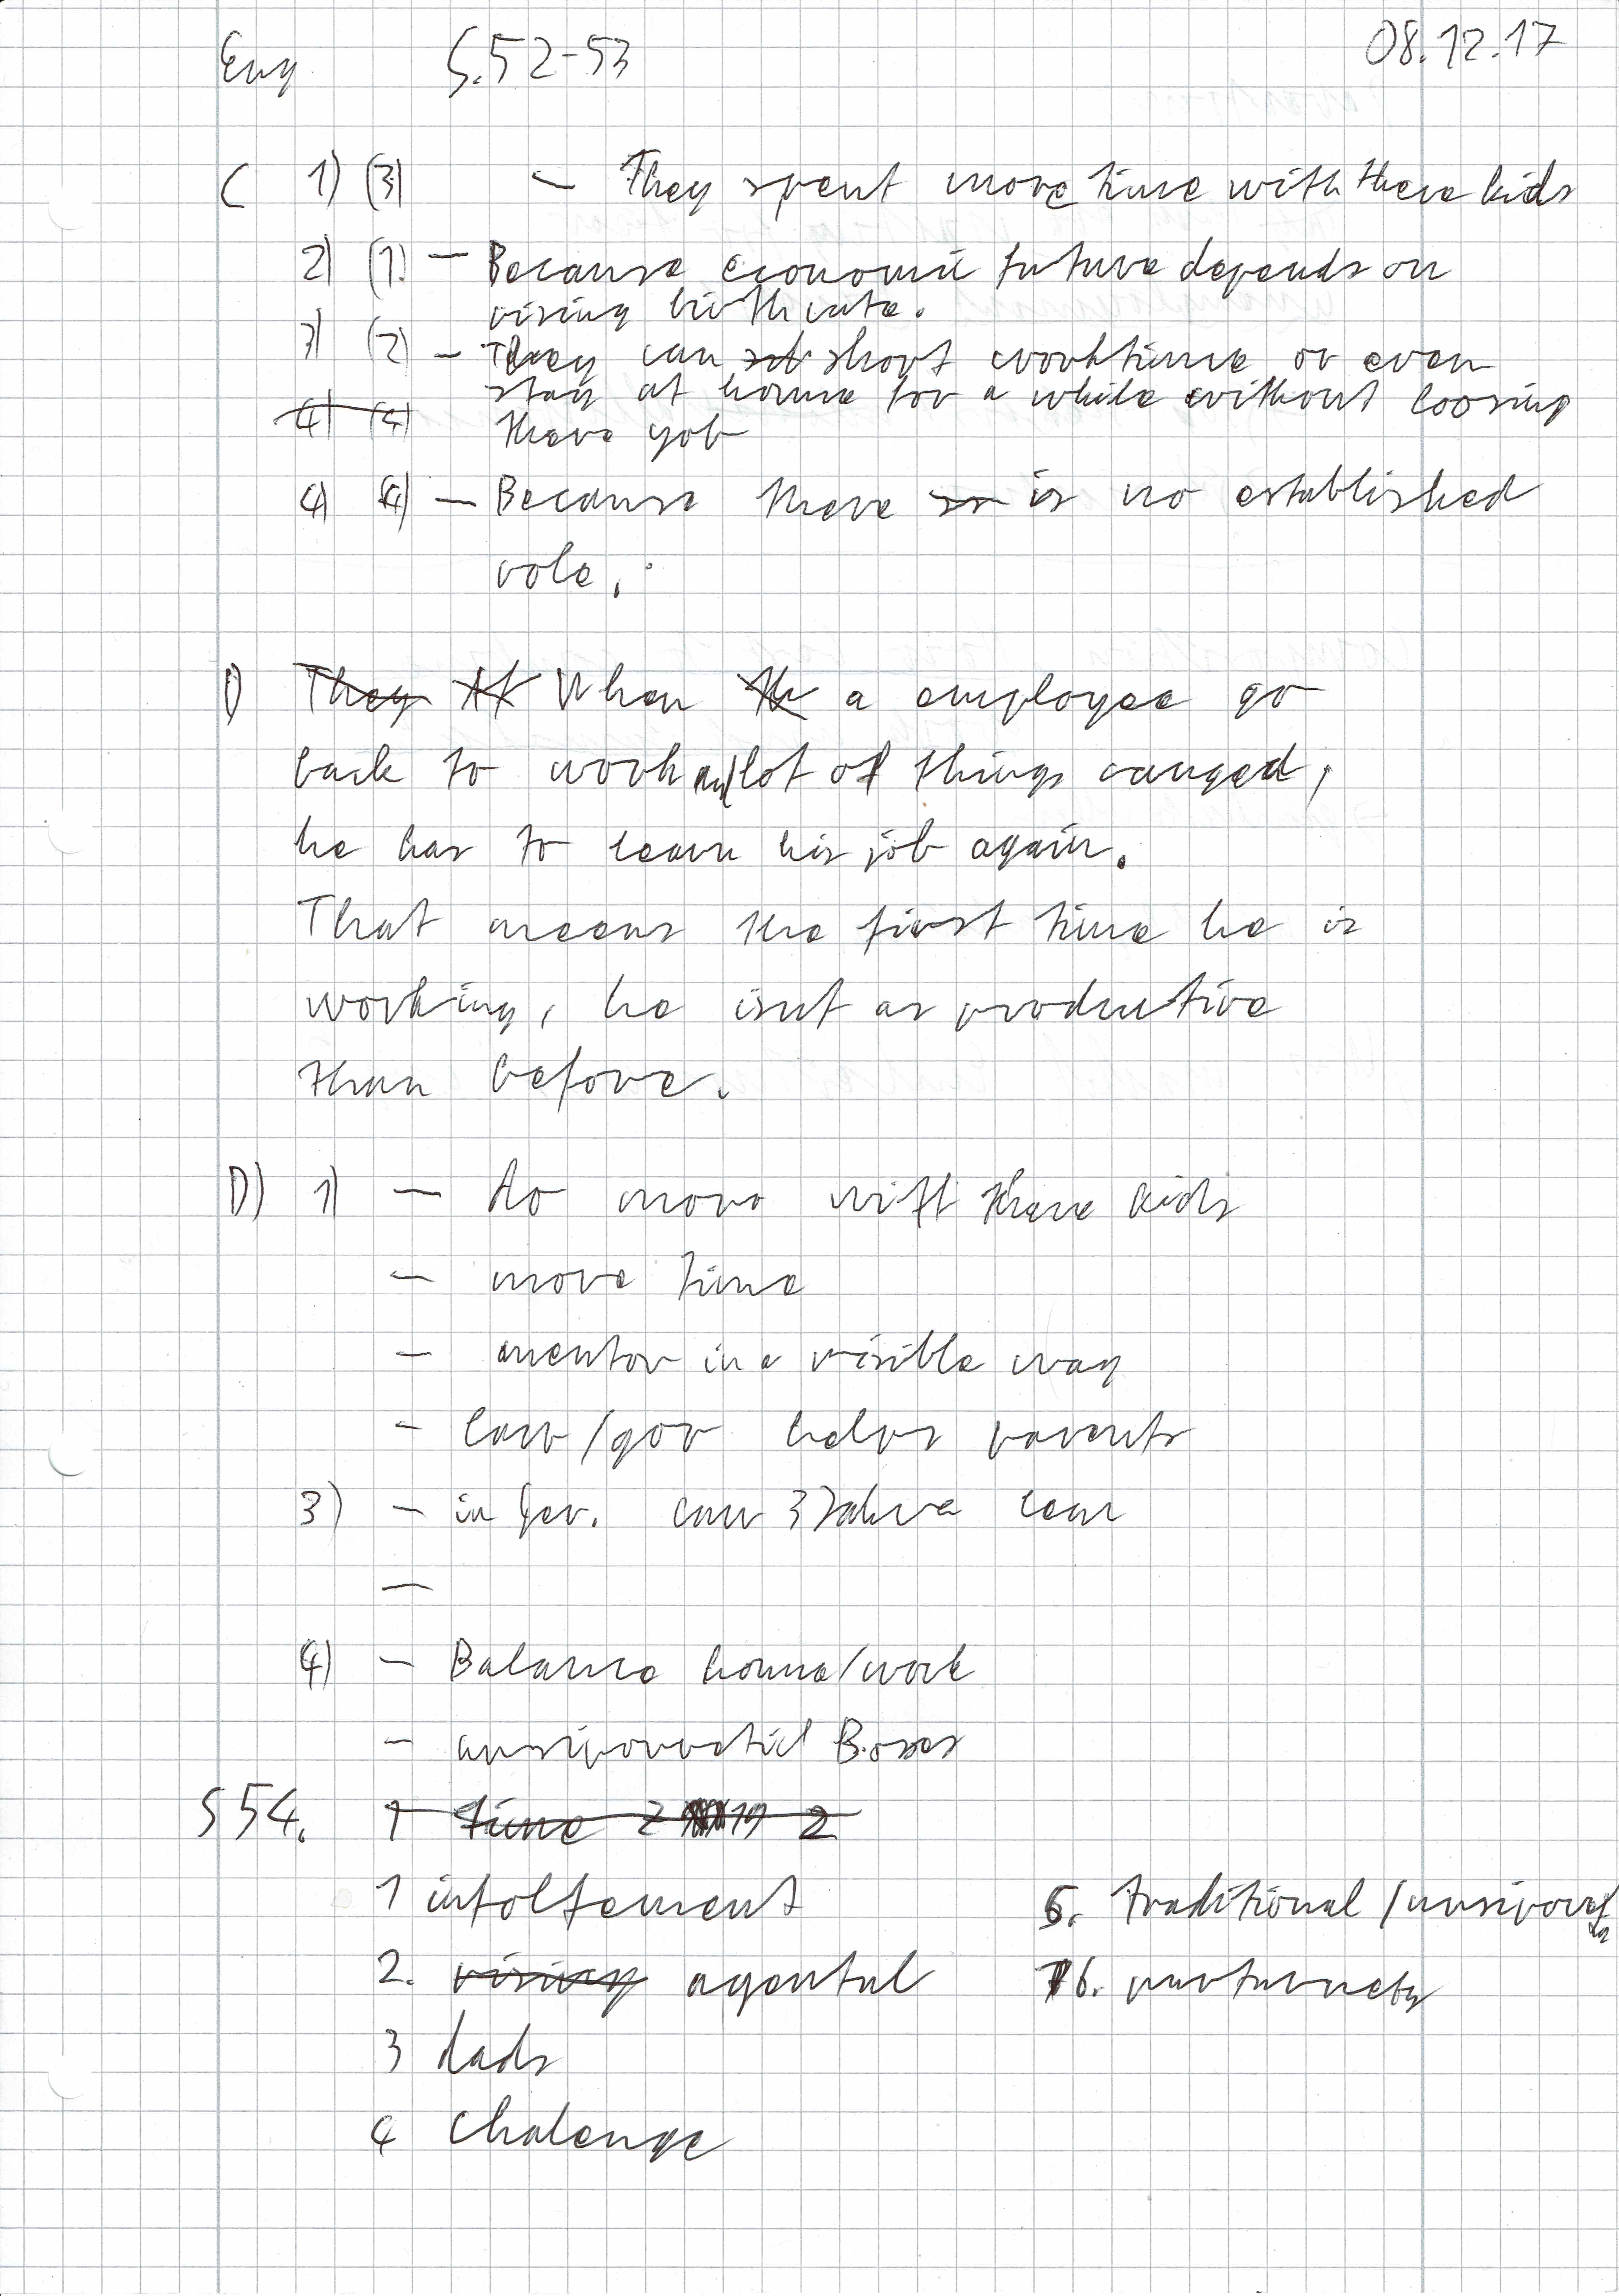 Eng S.52-53 08.12.17
C 1) (3) - They spent more time with there kids
2) (1) - Because economic future depends on
rising birthrate.
3) (2) - They can short worktime or even
stay at home for a while without loosing
there yob
4) (4) - Because there is no established
role.
D) When a employee go
back to work lot of things canged,
he has to learn his job again.
That means the first time he is
working, he isnt as productive
than before.
D) 1) - do more wift there kids
- more time
- mentor in a visible way
- law/gov helps parents
3) - in Ger. can 3 Jahre
-
4) - Balance home/work
- Bosses
S 54.
1 infoltement 5. traditional /
2. agental 6.
3 dads
4 chalenge